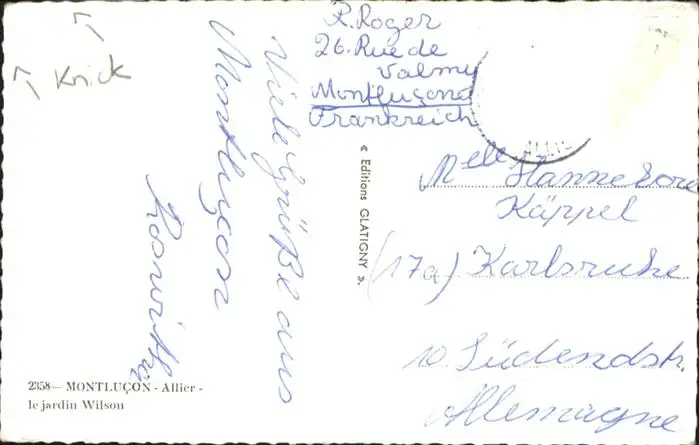 Knick
R. Roger
26. Rue de
Valmy
Montluçond
Frankreich
Viele Grüße aus
Montluçon
Roswitha
« Editions GLATIGNY ».
Melle Hannelore
Käppel
(17a) Karlsruhe
10 Südendstr.
Allemagne
2358 — MONTLUÇON - Allier -
le jardin Wilson